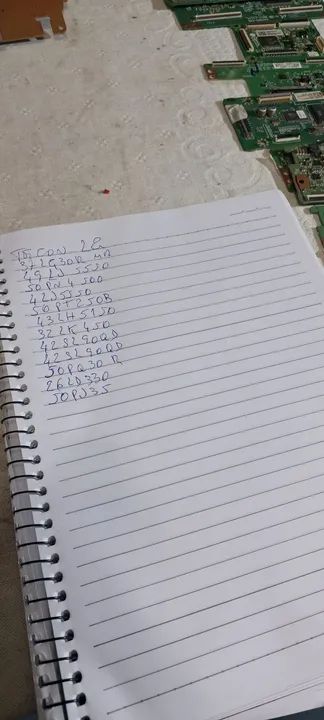 TICON LG
32LG30R MA
49LJ5550
50PN4500
42J5550
50PT250B
43LH5150
32LK450
42SL90QD
42SL90QD
50PQ30 R
26LD330
50PJ35